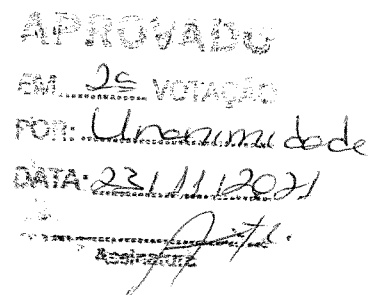 APROVADO
EM 2ª VOTAÇÃO
POR: Unanimidade
DATA: 23/11/2021
Assinatura